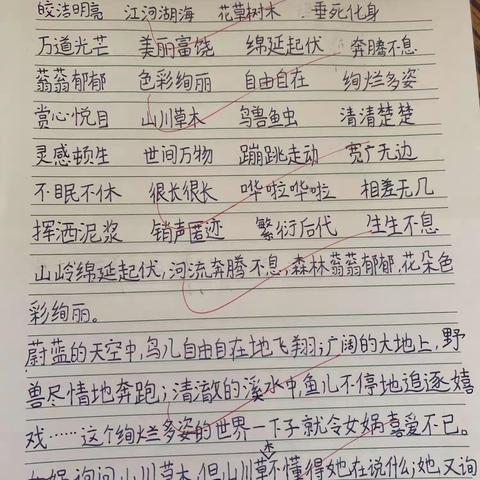 皎洁明亮 江河湖海 花草树木 垂死化身
万道光芒 美丽富饶 绵延起伏 奔腾不息
蓊蓊郁郁 色彩绚丽 自由自在 绚烂多姿
赏心悦目 山川草木 鸟兽鱼虫 清清楚楚
灵感顿生 世间万物 蹦跳走动 宽广无边
不眠不休 很长很长 哗啦哗啦 相差无几
挥洒泥浆 销声匿迹 繁衍后代 生生不息
山岭绵延起伏,河流奔腾不息,森林蓊蓊郁郁,花朵色
彩绚丽。
蔚蓝的天空中,鸟儿自由自在地飞翔;广阔的大地上,野
兽尽情地奔跑;清澈的溪水中,鱼儿不停地追逐嬉
戏……这个绚烂多姿的世界一下子就令女娲喜爱不已。
女娲询问山川草木,但山川草木不懂得她在说什么;她又询